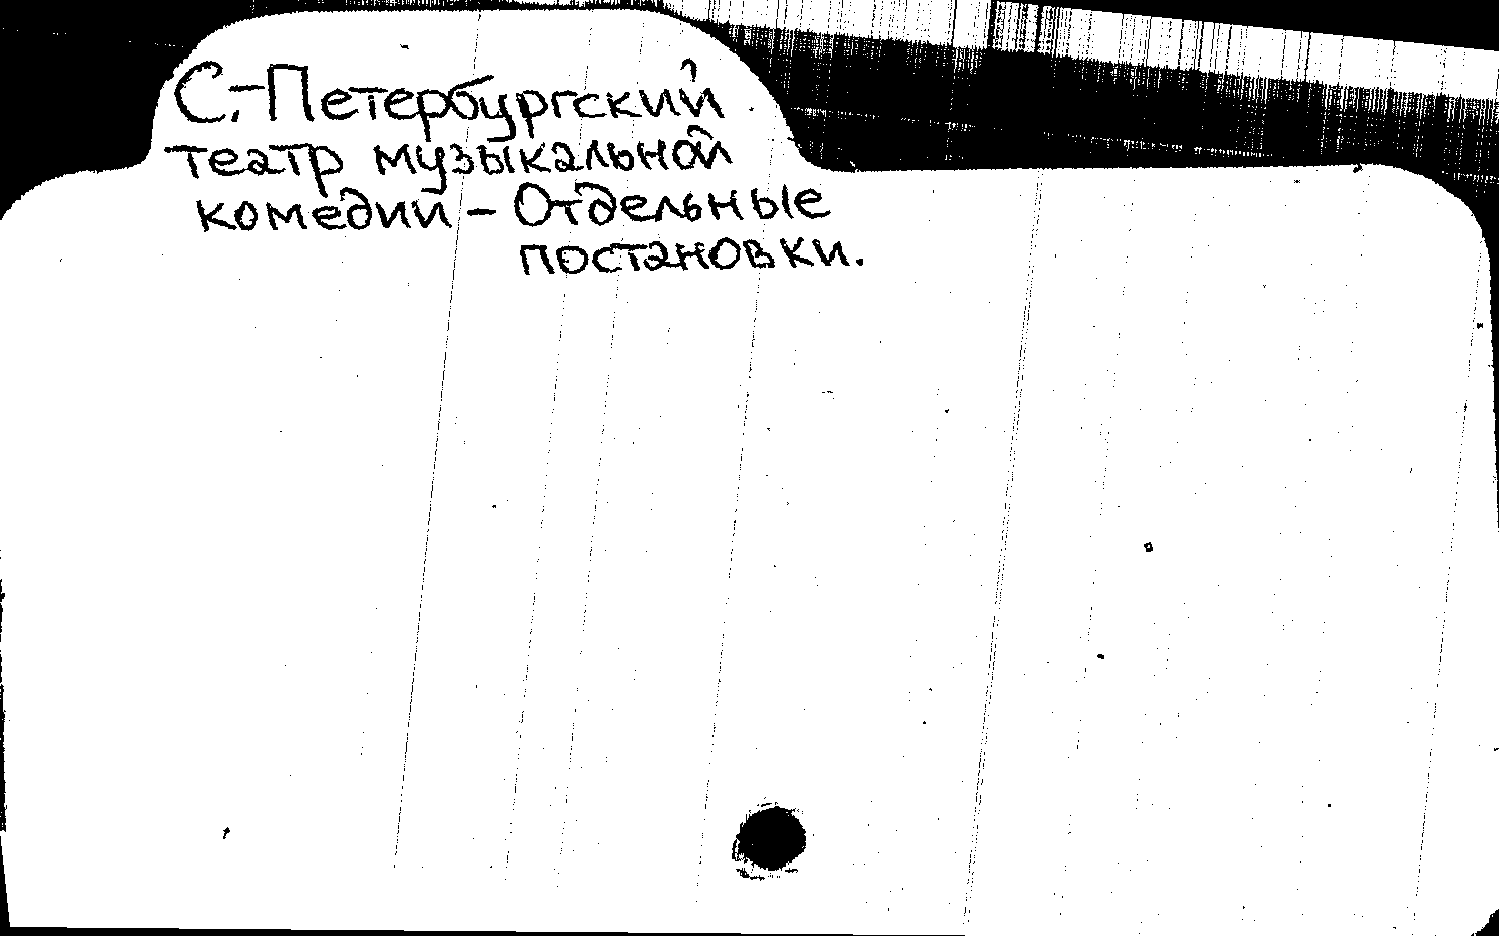 С.-Петербургский
театр музыкальной
комедии – Отдельные
постановки.